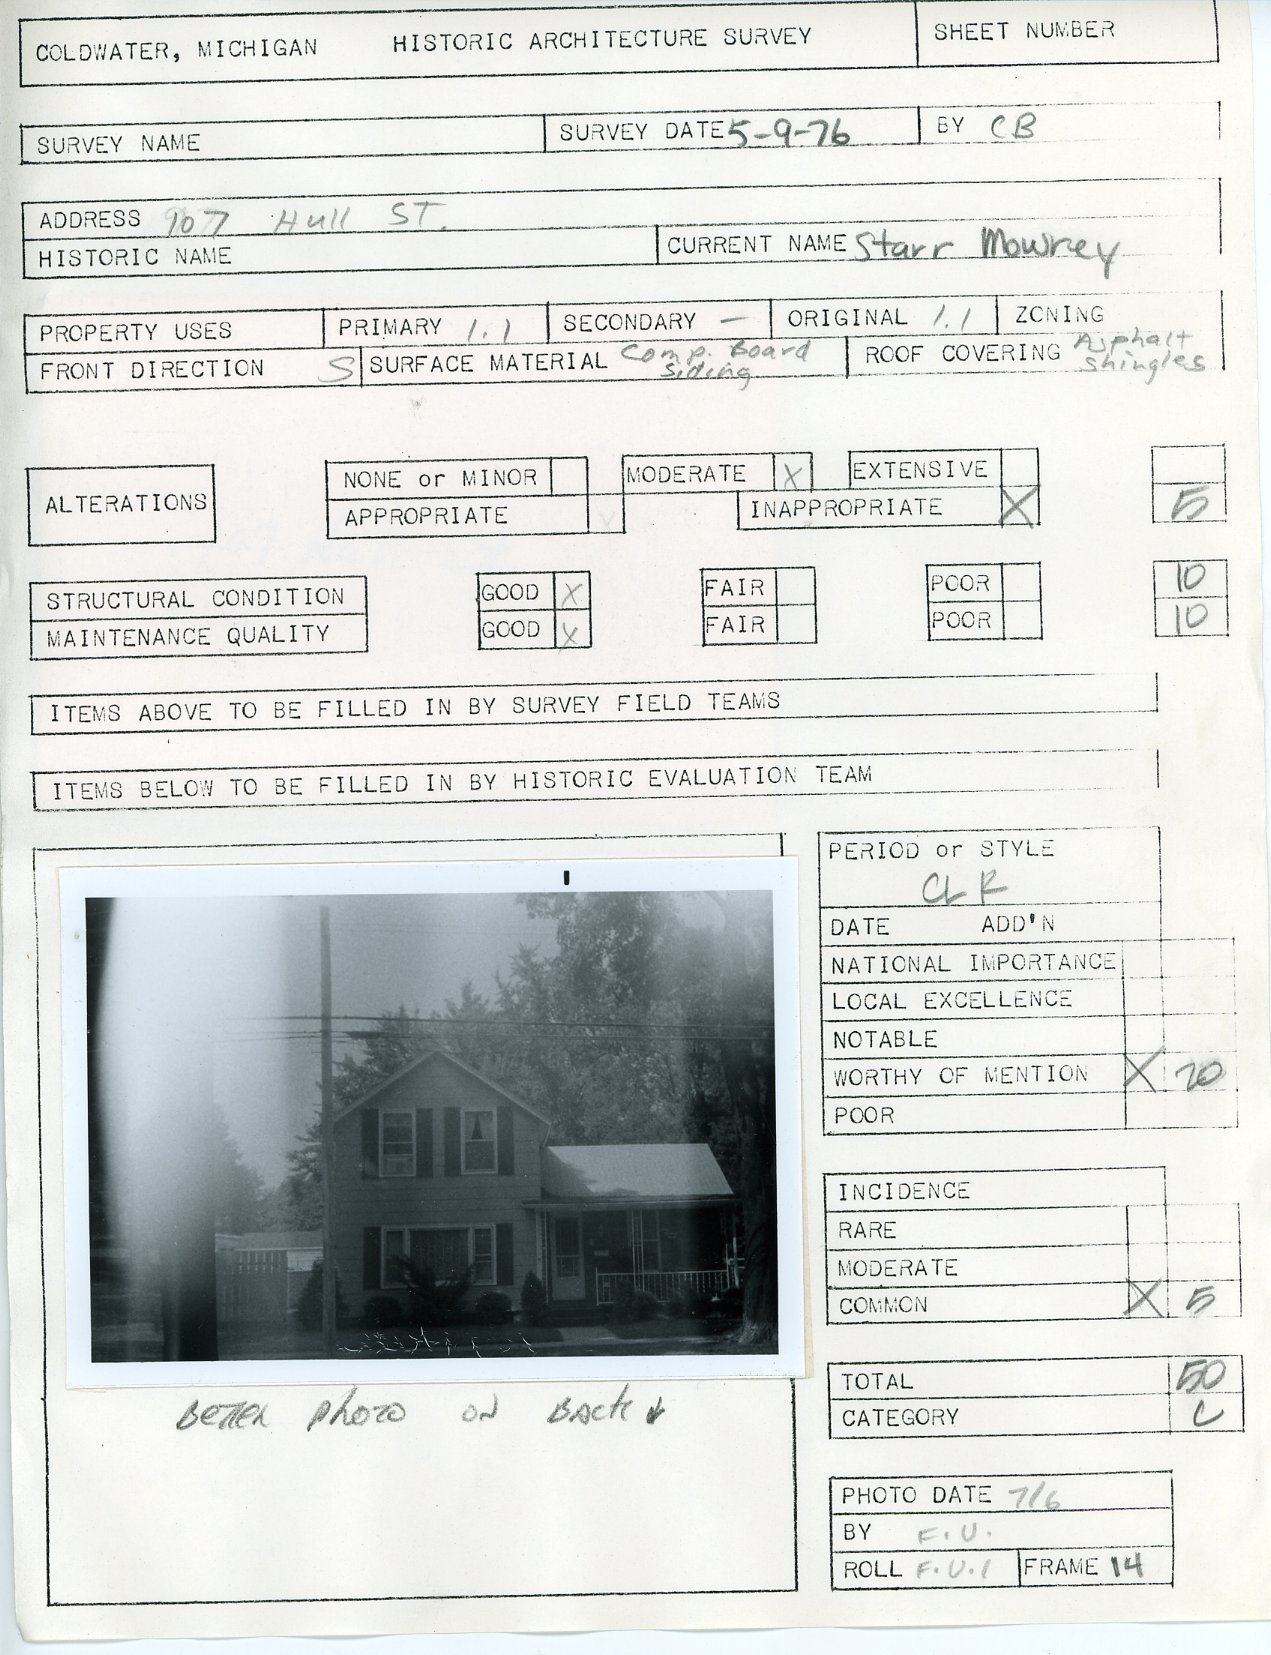 COLDWATER, MICHIGAN HISTORIC ARCHITECTURE SURVEY SHEET NUMBER
SURVEY NAME SURVEY DATE 5-9-76 BY CB
ADDRESS 907 Hull ST.
HISTORIC NAME CURRENT NAME Starr Mowrey
PROPERTY USES PRIMARY 1.1 SECONDARY — ORIGINAL 1.1 ZONING
FRONT DIRECTION S SURFACE MATERIAL Comp. Board Siding ROOF COVERING Asphalt Shingles
ALTERATIONS NONE or MINOR MODERATE X EXTENSIVE
APPROPRIATE INAPPROPRIATE X 5
STRUCTURAL CONDITION GOOD X FAIR POOR 10
MAINTENANCE QUALITY GOOD X FAIR POOR 10
ITEMS ABOVE TO BE FILLED IN BY SURVEY FIELD TEAMS
ITEMS BELOW TO BE FILLED IN BY HISTORIC EVALUATION TEAM
PERIOD or STYLE
CLR
DATE ADD'N
NATIONAL IMPORTANCE
LOCAL EXCELLENCE
NOTABLE
WORTHY OF MENTION X 20
POOR
INCIDENCE
RARE
MODERATE
COMMON X 5
TOTAL 50
CATEGORY C
BETTER PHOTO ON BACK ↓
PHOTO DATE 7/6
BY F.U.
ROLL F.U.1 FRAME 14